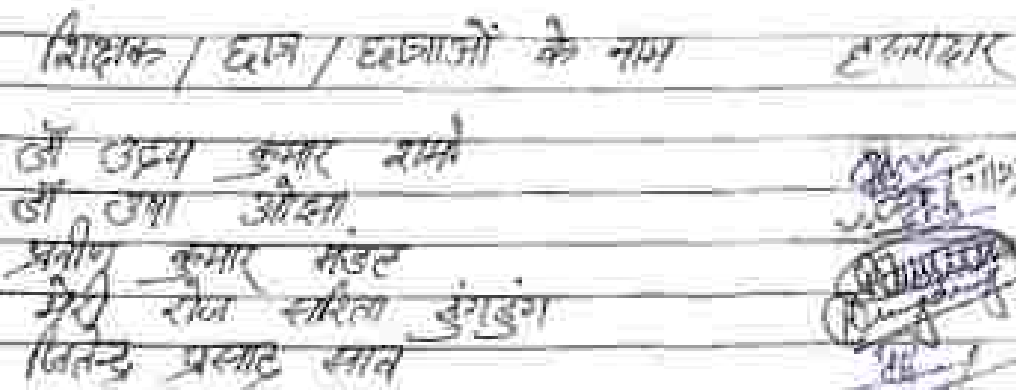 शिक्षक / छात्र / छात्राओं के नाम हस्ताक्षर
डॉ उदय कुमार शर्मा
डॉ उषा ओझा
प्रवीण कुमार मंडल
मेरी रोज सरिता डुंगडुंग
जितेन्द्र प्रसाद साव